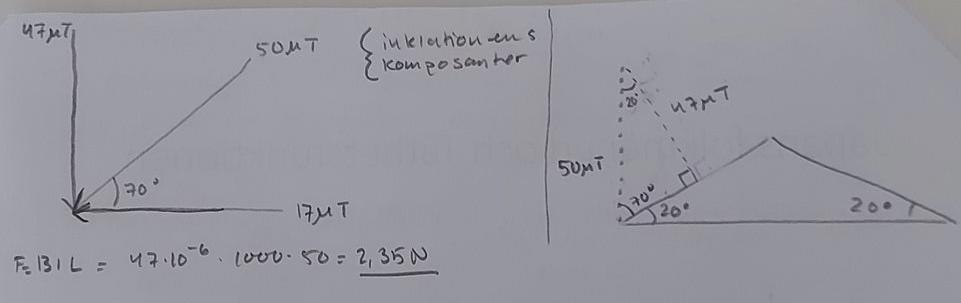 47μT
50μT
{ inklationens
{ komposanter
70°
17μT
F=BIL = 47·10⁻⁶ · 1000 · 50 = 2,35N
20°
47μT
50μT
70°
20°
20°